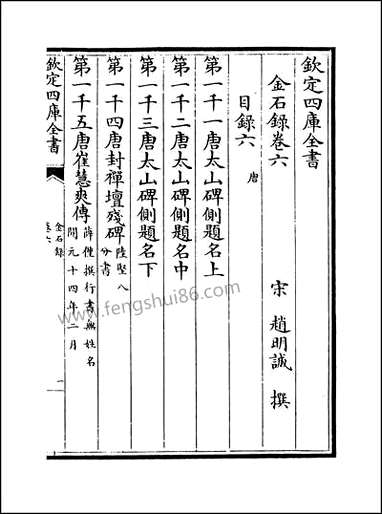 欽定四庫全書
金石錄卷六
宋 趙明誠 撰
目録六 唐
第一千一唐太山碑側題名上
第一千二唐太山碑側題名中
第一千三唐太山碑側題名下
第一千四唐封禪壇殘碑 陸堅八分書
第一千五唐崔慧爽傳 薛僅撰行書無姓名 開元十四年二月
欽定四庫全書
金石録
卷六
一
www.fengshui86.com